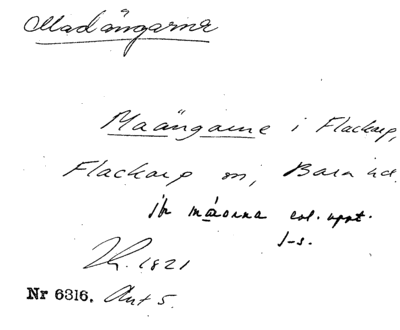 Madängarne
Maängarne i Flackarp,
Flackarp sn, Bara hd.
jfr måsarna enl. uppt.
J-s.
1821
Nr 6316. Ant 5.